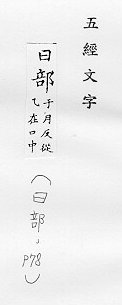 五經文字
曰部
于月反從
乙在口中
（曰部、P78）